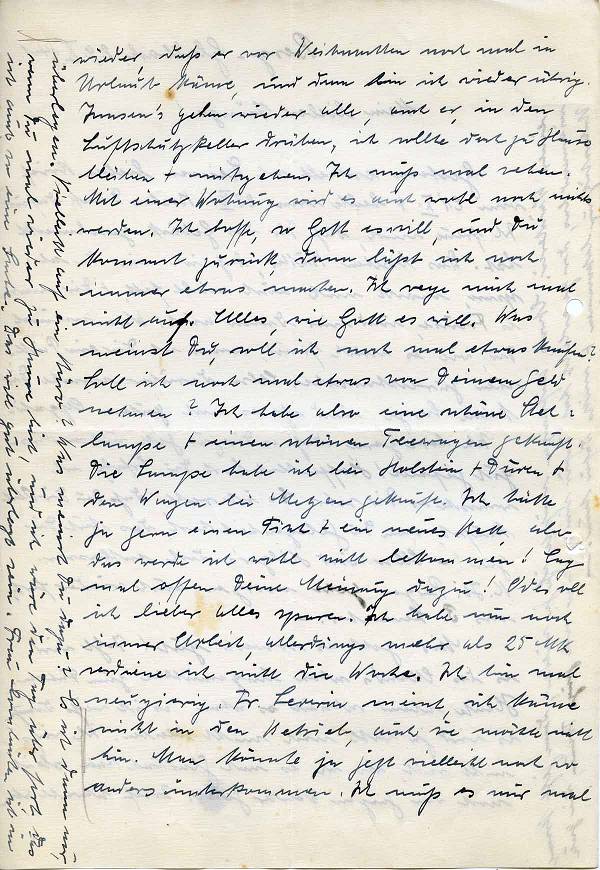 wieder, daß er vor Weihnachten noch mal in
Urlaub käme, und dann bin ich wieder übrig.
Jansen's gehen wieder alle, auch er, in den
Luftschutzkeller drüben, ich sollte dort zu Hause
bleiben + mitgehen. Ich muß mal sehen.
Mit einer Wohnung wird es auch wohl noch nichts
werden. Ich hoffe, so Gott es will, und Du
kommst zurück, dann läßt sich noch
immer etwas machen. Ich rege mich mal
nicht auf. Alles, wie Gott es will. Was
meinst Du, soll ich noch mal etwas kaufen?
Soll ich noch mal etwas von Deinem Geld
nehmen? Ich habe also eine schöne Steh=
lampe + einen schönen Teewagen gekauft.
Die Lampe habe ich bei Holstein + Düren +
den Wagen bei Metzen gekauft. Ich hätte
ja gern einen Tisch + ein neues Bett, aber
das werde ich wohl nicht bekommen! Sag
mal offen Deine Meinung dazu! Oder soll
ich lieber alles sparen. Ich habe nun noch
immer Arbeit, allerdings mehr als 25 Mk
verdiene ich nicht die Woche. Ich bin mal
neugierig. Fr. Severin meint, ich käme
nicht in den Betrieb, auch sie möchte nicht
hin. Man könnte ja jetzt vielleicht noch wo
anders unterkommen. Ich muß es mir mal
überlegen. Vielleicht auf ein Büro? Was meinst Du dazu? Es ist dann nur,
wenn Du mal wieder zu Hause bist, und ich wäre den Tag über fort, das
ist auch so eine Sache. Das will gut überlegt sein. Frau ist in